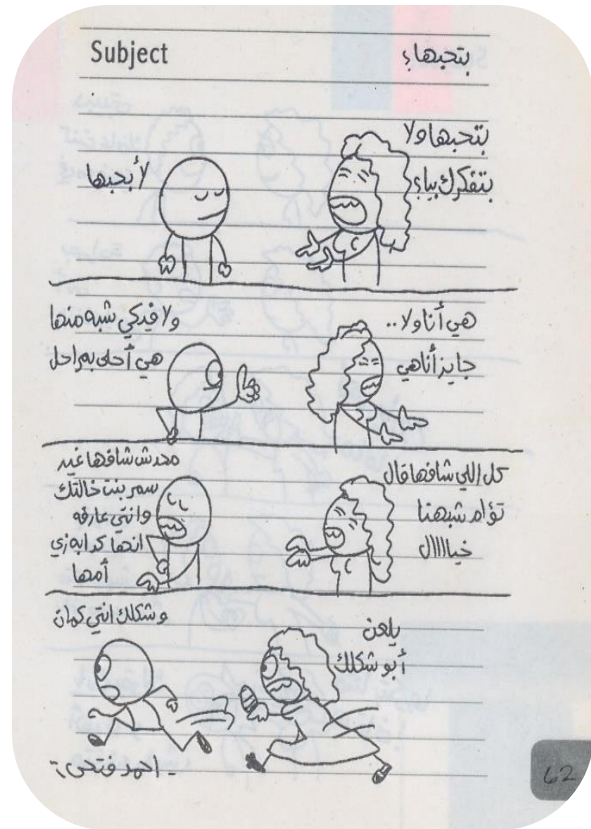 Subject
بتحبها؟
بتحبها ولا
بتفكرك بيا؟
لأ بحبها
هي أنا ولا ..
جايز أنا هي
ولا فيكي شبه منها
هي أحلى بمراحل
كل اللي شافها قال
تؤام شبهنا
خيااااال
محدش شافها غير
سمر بنت خالتك
وانتي عارفه
انها كدابه زي
أمها
يلعن
أبو شكلك
وشكلك انتي كمان
- احمد فتحى؛
62